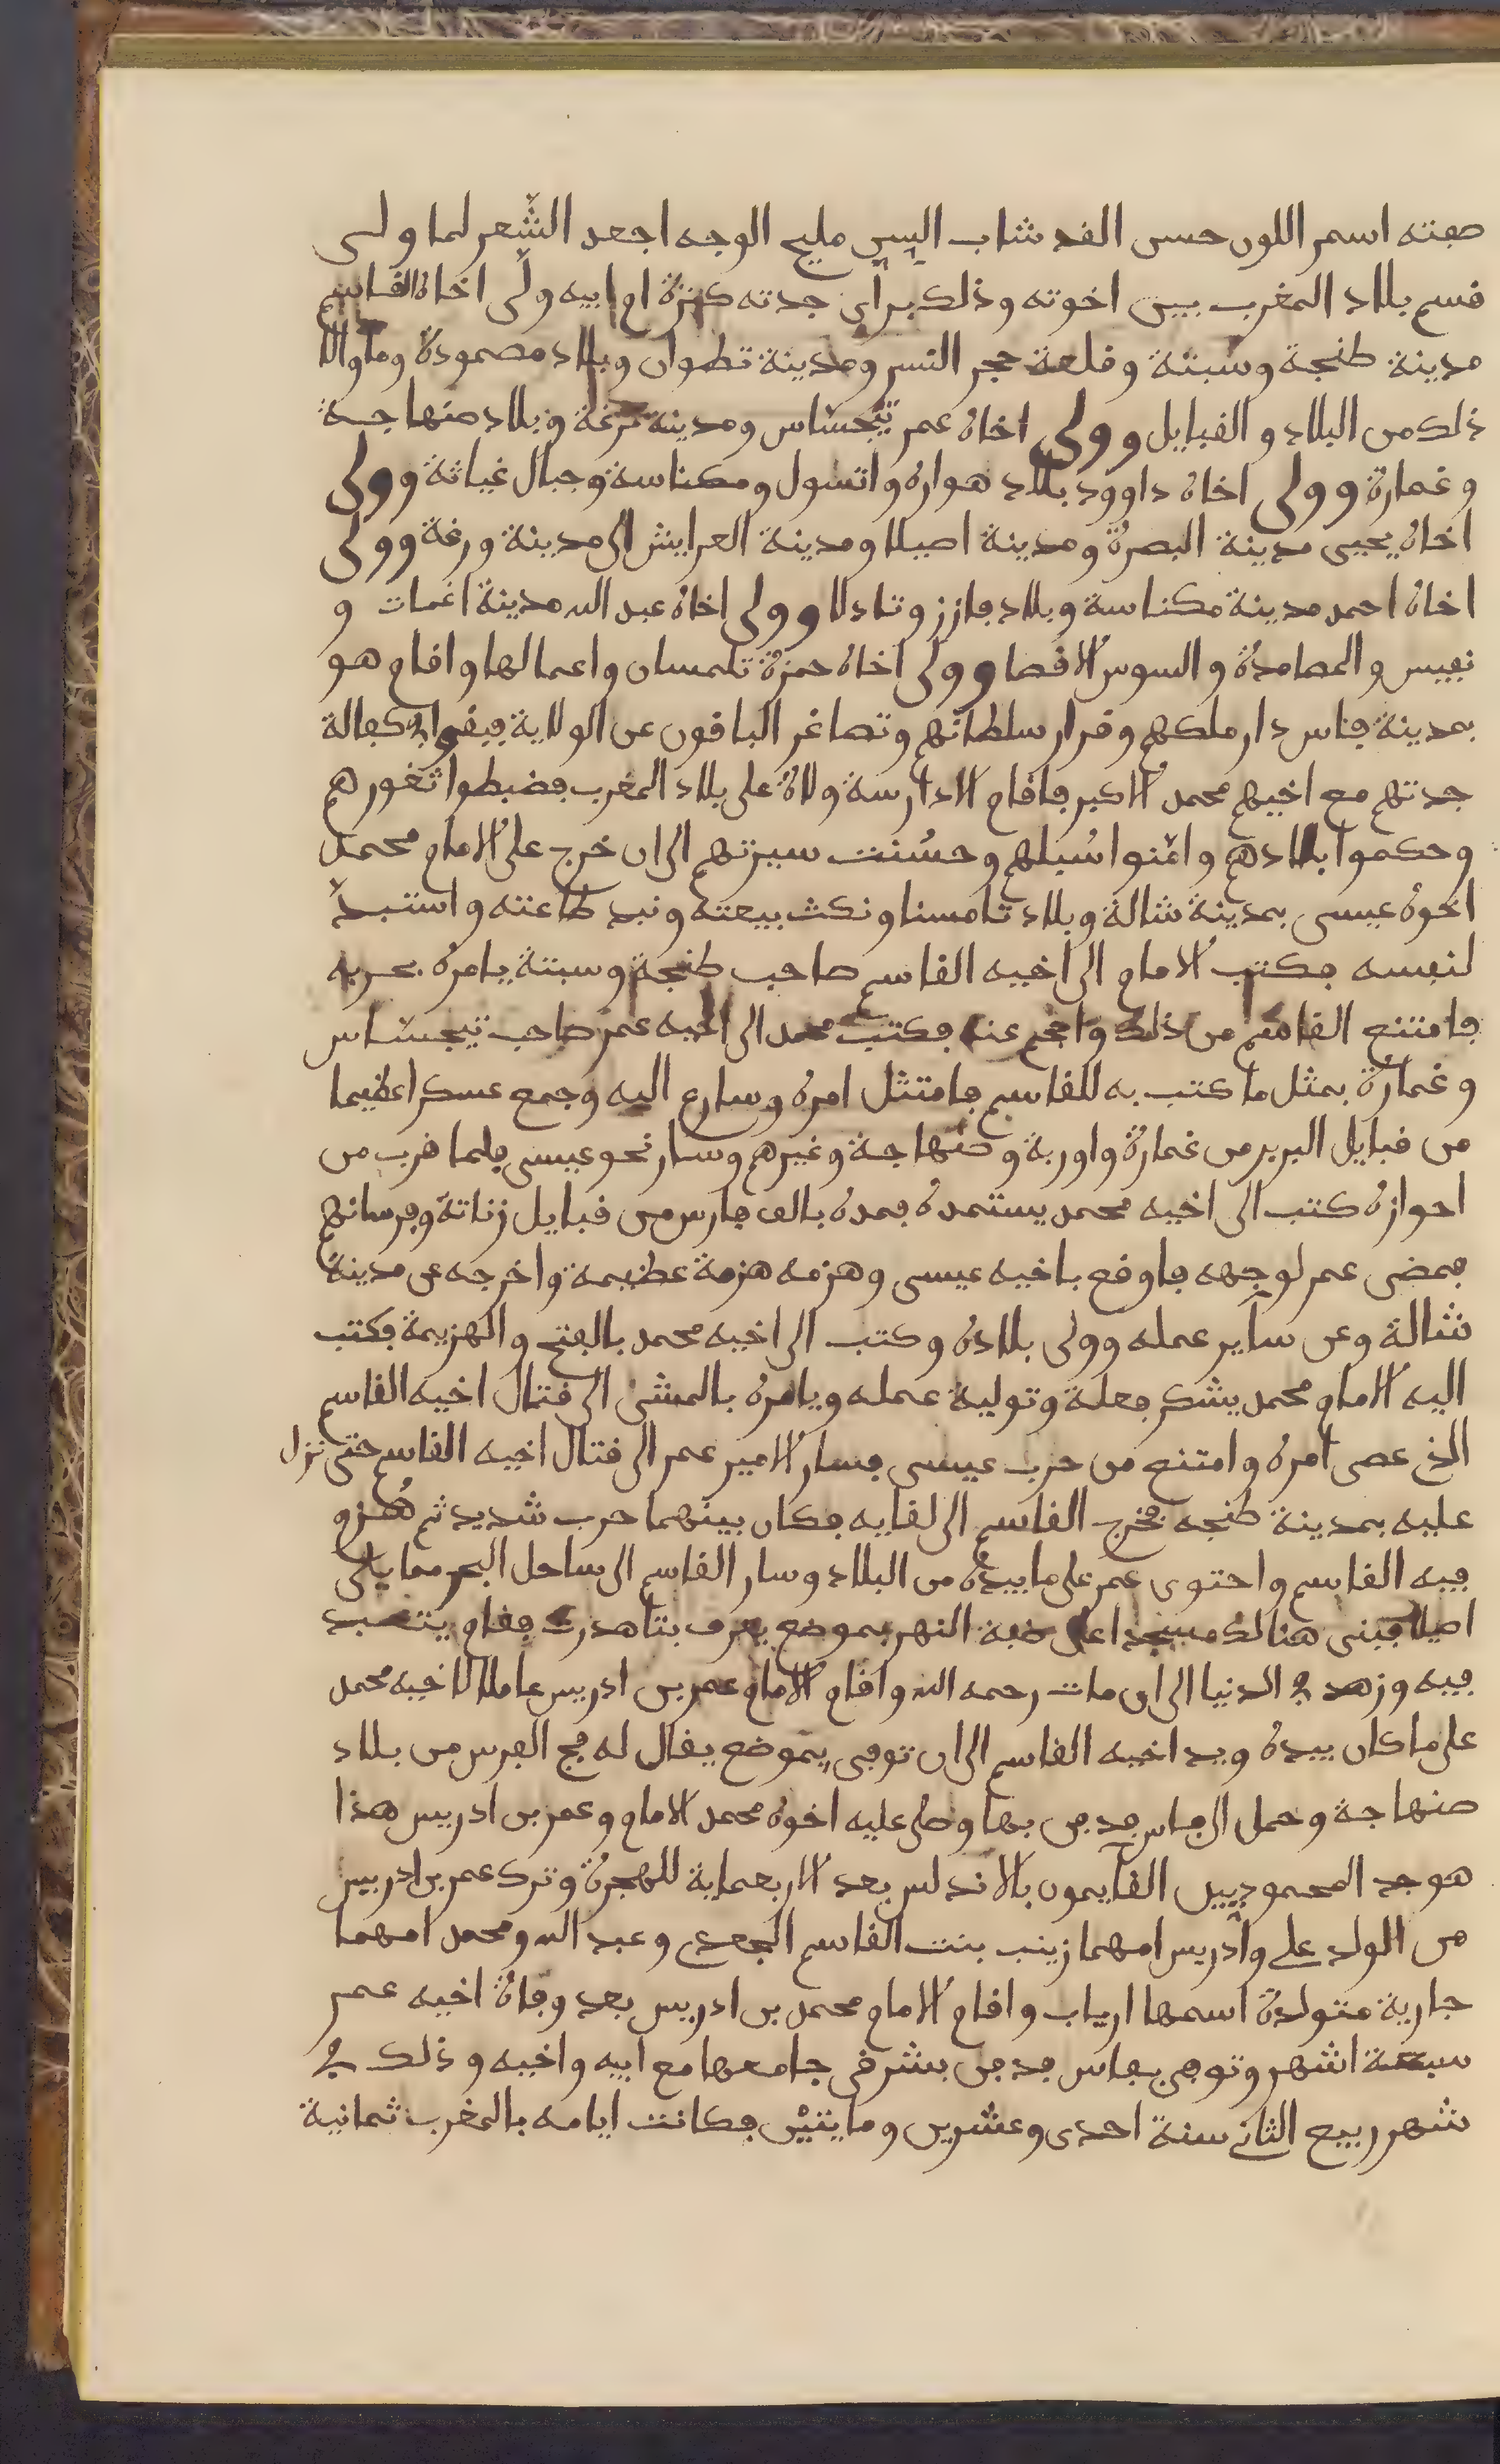 صفته اسمر اللون حسن القد شاب السن مليح الوجه اجعد الشّعر لما ولى
قسم بلاد المغرب بين اخوته وذلك برأي جدته كنزة ام ابيه ولّى اخاه القاسم
مدينة طنجة وسبتة وقلعة حجر النسر ومدينة تطوان وبلاد مصمودة وما والا
ذلك من البلاد والقبايل وولى اخاه عمر تيجساس ومدينة ترغة وبلاد صنهاجة
وغمارة وولى اخاه داوود بلاد هواره واتسول ومكناسة وجبال غياثة وولى
اخاه يحيى مدينة البصرة ومدينة اصيلا ومدينة العرايش الى مدينة ورغة وولى
اخاه احمد مدينة مكناسة وبلاد فازز وتادلا وولى اخاه عبد الله مدينة اغمات و
نفيس والمصامدة والسوس الاقصا وولى اخاه حمزة تلمسان واعمالها واقام هو
بمدينة فاس دار ملكهم وقرار سلطانهم وتصاغر الباقون عن الولاية فبقوا في كفالة
جدتهم مع اخيهم محمد الاكبر فاقام الادارسة ولاة على بلاد المغرب فضبطوا ثغورهم
وحكموا بلادهم وامّنوا سُبلهم وحسُنت سيرتهم الى ان خرج على الامام محمد
اخوه عيسى بمدينة شالة وبلاد تامسنا ونكث بيعته ونبد طاعته واستبدّ
لنفسه فكتب الامام الى اخيه القاسم صاحب طنجة وسبتة يامره بحربه
فامتنع القاسم من ذلك واحجم عنه فكتب محمد الى اخيه عمر صاحب تيجساس
وغمارة بمثل ما كتب به للقاسم فامتثل امره وسارع اليه وجمع عسكرا عظيما
من قبايل البربر من غمارة واوربة وصنهاجة وغيرهم وسار نحو عيسى فلما قرب من
احوازه كتب الى اخيه محمد يستمده فمده بالف فارس من قبايل زناتة وفرسانهم
فمضى عمر لوجهه فاوقع باخيه عيسى وهزمه هزمة عظيمة واخرجه عن مدينة
شالة وعن ساير عمله وولى بلاده وكتب الى اخيه محمد بالفتح والهزيمة فكتب
اليه الامام محمد يشكر فعلة وتولية عمله ويامره بالمشى الى قتال اخيه القاسم
الذي عصى امره وامتنع من حرب عيسى فسار الامير عمر الى قتال اخيه القاسم حتى نزل
عليه بمدينة طنجه فخرج القاسم الى لقايه فكان بينهما حرب شديد ثم هُزم
فيه القاسم واحتوى عمر على ما بيده من البلاد وسار القاسم الى ساحل البحر مما يلى
اصيلا فبنى هنالك مسجدا على ضبة النهر بموضع يعرف بتاهدرت فقام يتعبد
فيه وزهد في الدنيا الى ان مات رحمه الله واقام الامام عمر بن ادريس عاملا لاخيه محمد
على ما كان بيده وبيد اخيه القاسم الى ان توفى بموضع يقال له فج الفرس من بلاد
صنهاجة وحمل الى فاس فدفن بها وصلى عليه اخوه محمد الامام وعمر بن ادريس هذا
هو جد المحموديين القايمون بالاندلس بعد الاربعماية للهجرة وترك عمر بن ادريس
من الولد على وادريس امهما زينب بنت القاسم الجعدي وعبد الله ومحمد امهما
جارية متولدة اسمها ارباب واقام الامام محمد بن ادريس بعد وفاة اخيه عمر
سبعة اشهر وتوفى بفاس فدفن بشرقى جامعها مع ابيه واخيه وذلك في
شهر ربيع الثاني سنة احدى وعشرين ومايتيْن فكانت ايامه بالمغرب ثمانية